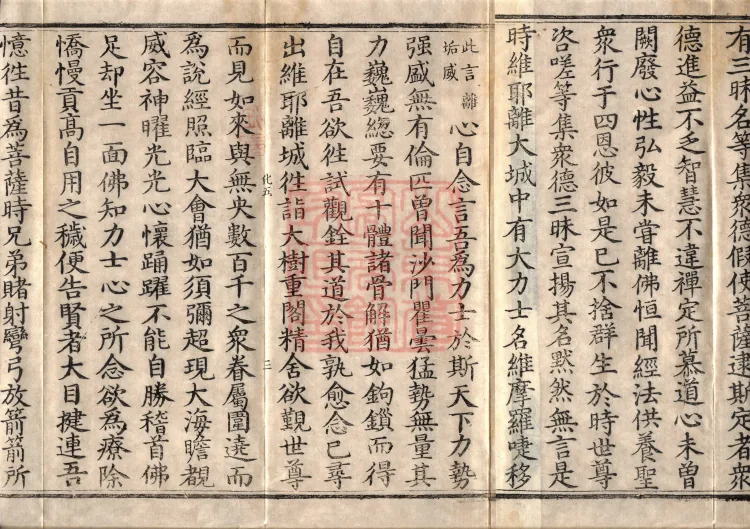 有三昧名等集衆德假使菩薩逮斯定者衆
德進益不乏智慧不違禪定所慕道心未曾
闕廢心性弘毅未嘗離佛恒聞經法供養聖
衆行于四恩彼如是已不捨群生於時世尊
咨嗟等集衆德三昧宣揚其名黙然無言是
時維耶離大城中有大力士名維摩羅㖡移
此言離
垢威
心自念言吾為力士於斯天下力勢
强盛無有倫匹曾聞沙門瞿曇猛勢無量其
力巍巍緫要有十體諸骨解猶如鉤鎖而得
自在吾欲徃試觀銓其道於我孰愈念已尋
出維耶離城徃詣大樹重閣精舍欲覲世尊
化五
三
而見如來與無央數百千之衆眷屬圍遶而
為說經照臨大會猶如須彌超現大海瞻覩
威容神曜光光心懷踊躍不能自勝稽首佛
足却坐一面佛知力士心之所念欲為療除
憍慢貢高自用之穢便告賢者大目揵連吾
憶徃昔為菩薩時兄弟賭射彎弓放箭箭所